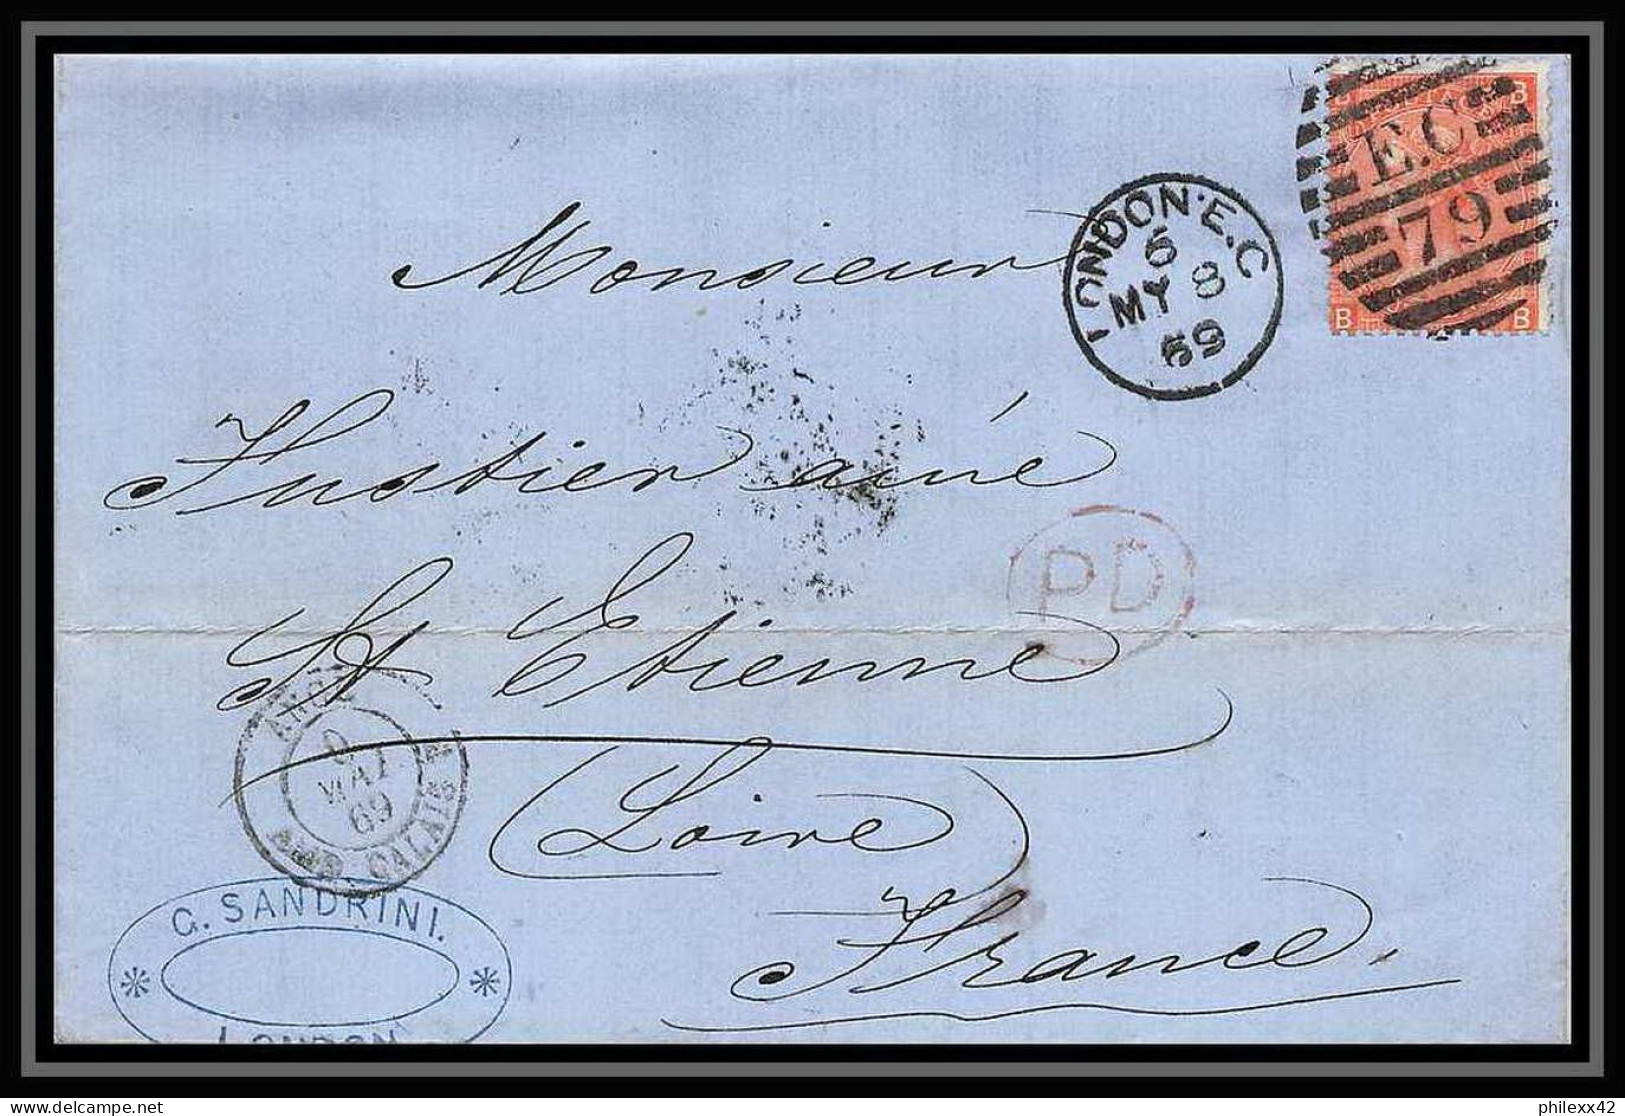 B B
E.C
79
B B
LONDON·E.C
6
MY 8
69
Monsieur
Fustier aîné
PD
St Etienne
ANGL
9
MAI
69
AMB. CALAIS
(Loire)
France.
G. SANDRINI.
LONDON
delcampe.net
philexx42